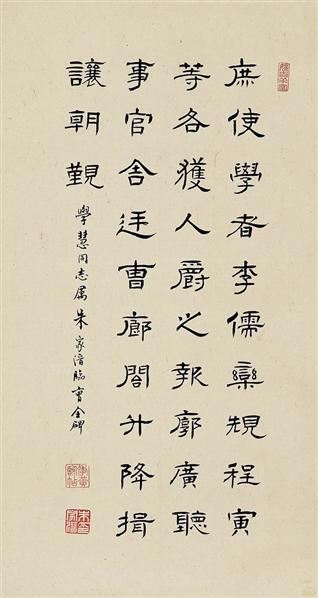 庶使學者李儒欒規程寅
等各獲人爵之報廓廣聽
事官舍廷曹廊閤升降揖
讓朝覲
學慧同志屬朱家濟臨曹全碑